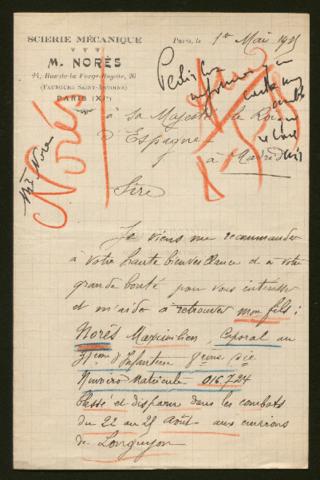 SCIERIE MÉCANIQUE
M. NORÈS
(FAUBOURG SAINT-ANTOINE)
PARIS (XIe)
Paris, le 1er Mai 1915
Norès
à Sa Majesté le Roi
d'Espagne
à Madrid
Sire
Je viens me recommander
à Votre haute bienveillance et à votre
grande bonté pour vous intéresser
et m'aider à retrouver mon fils:
Norès Maximilien, Caporal au
d'Infanterie 8eme Cie
Numéro Matricule 016.724
blessé et disparu dans les combats
du 22 au 25 Août aux environs
de Longuyon